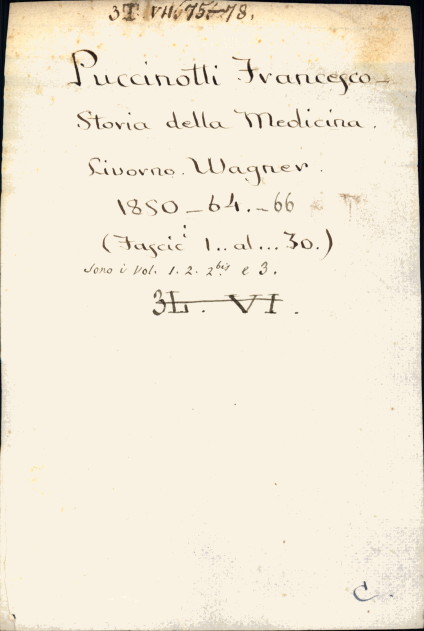 3T VII 75-78.
Puccinotti Francesco_
Storia della Medicina.
Livorno. Wagner.
1850_64._66
(Fascic.i 1.. al... 30.)
sono i Vol. 1. 2. 2bis e 3.
3L. VI.
C.